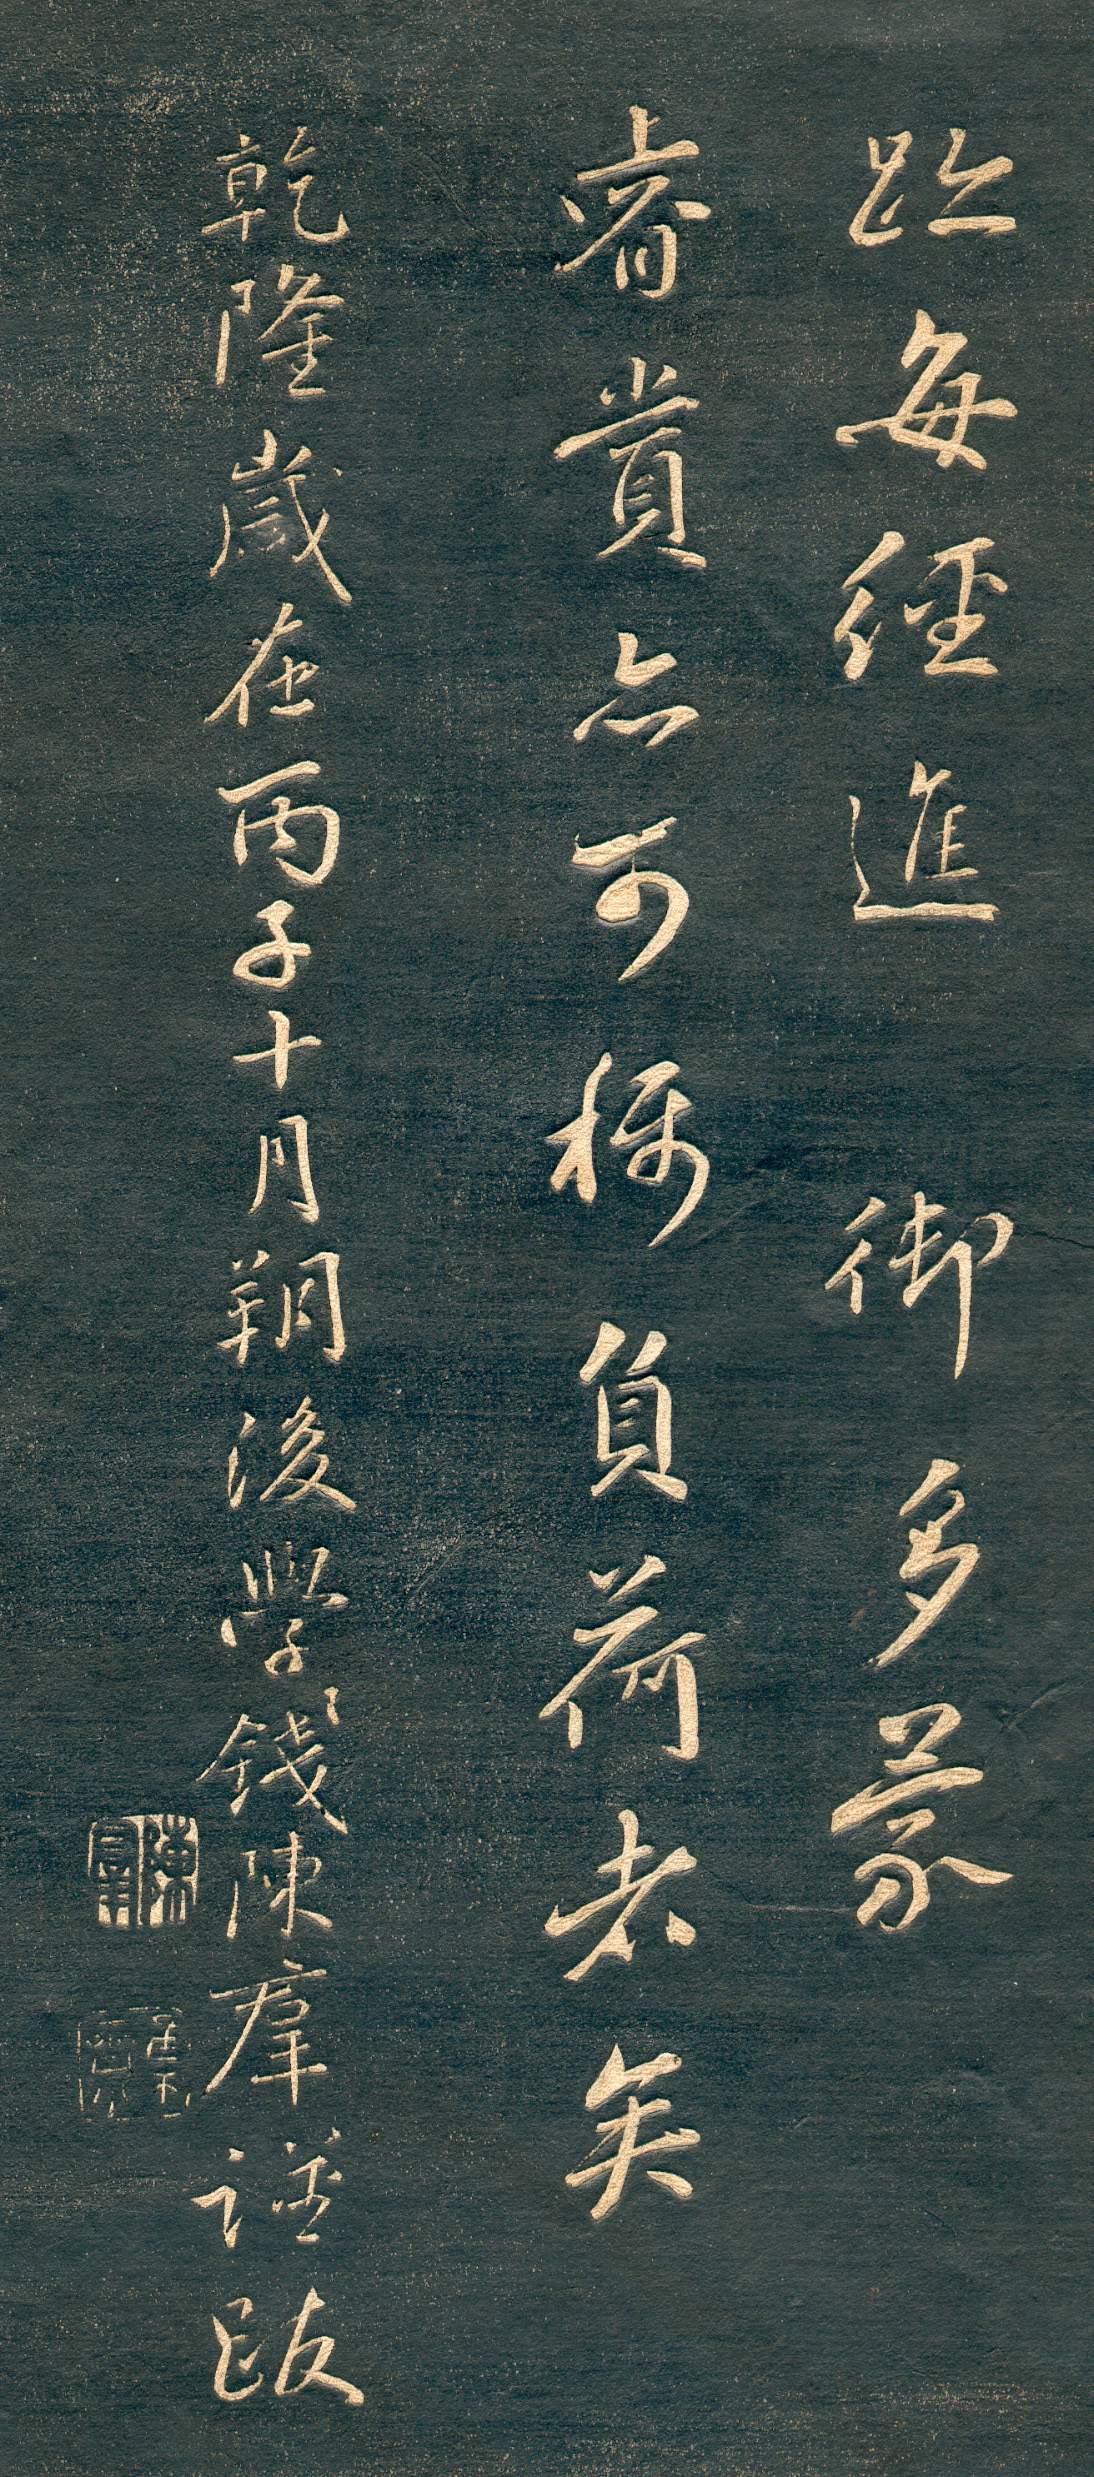 趾每經進 御多蒙
睿賞亦可稱負荷者矣
乾隆歲在丙子十月朔後學錢陳羣謹跋
陳羣